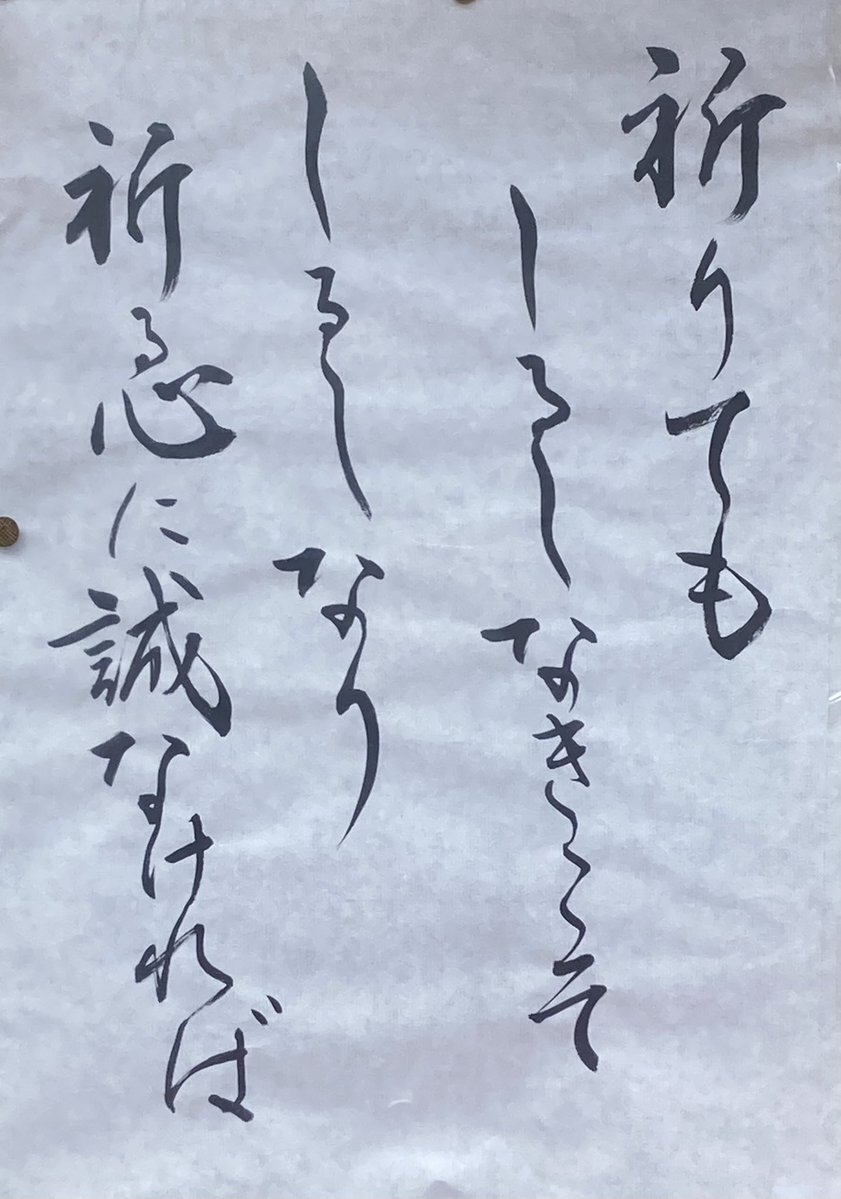 祈りても
しるしなきこそ
しるしなり
祈る心に誠なければ